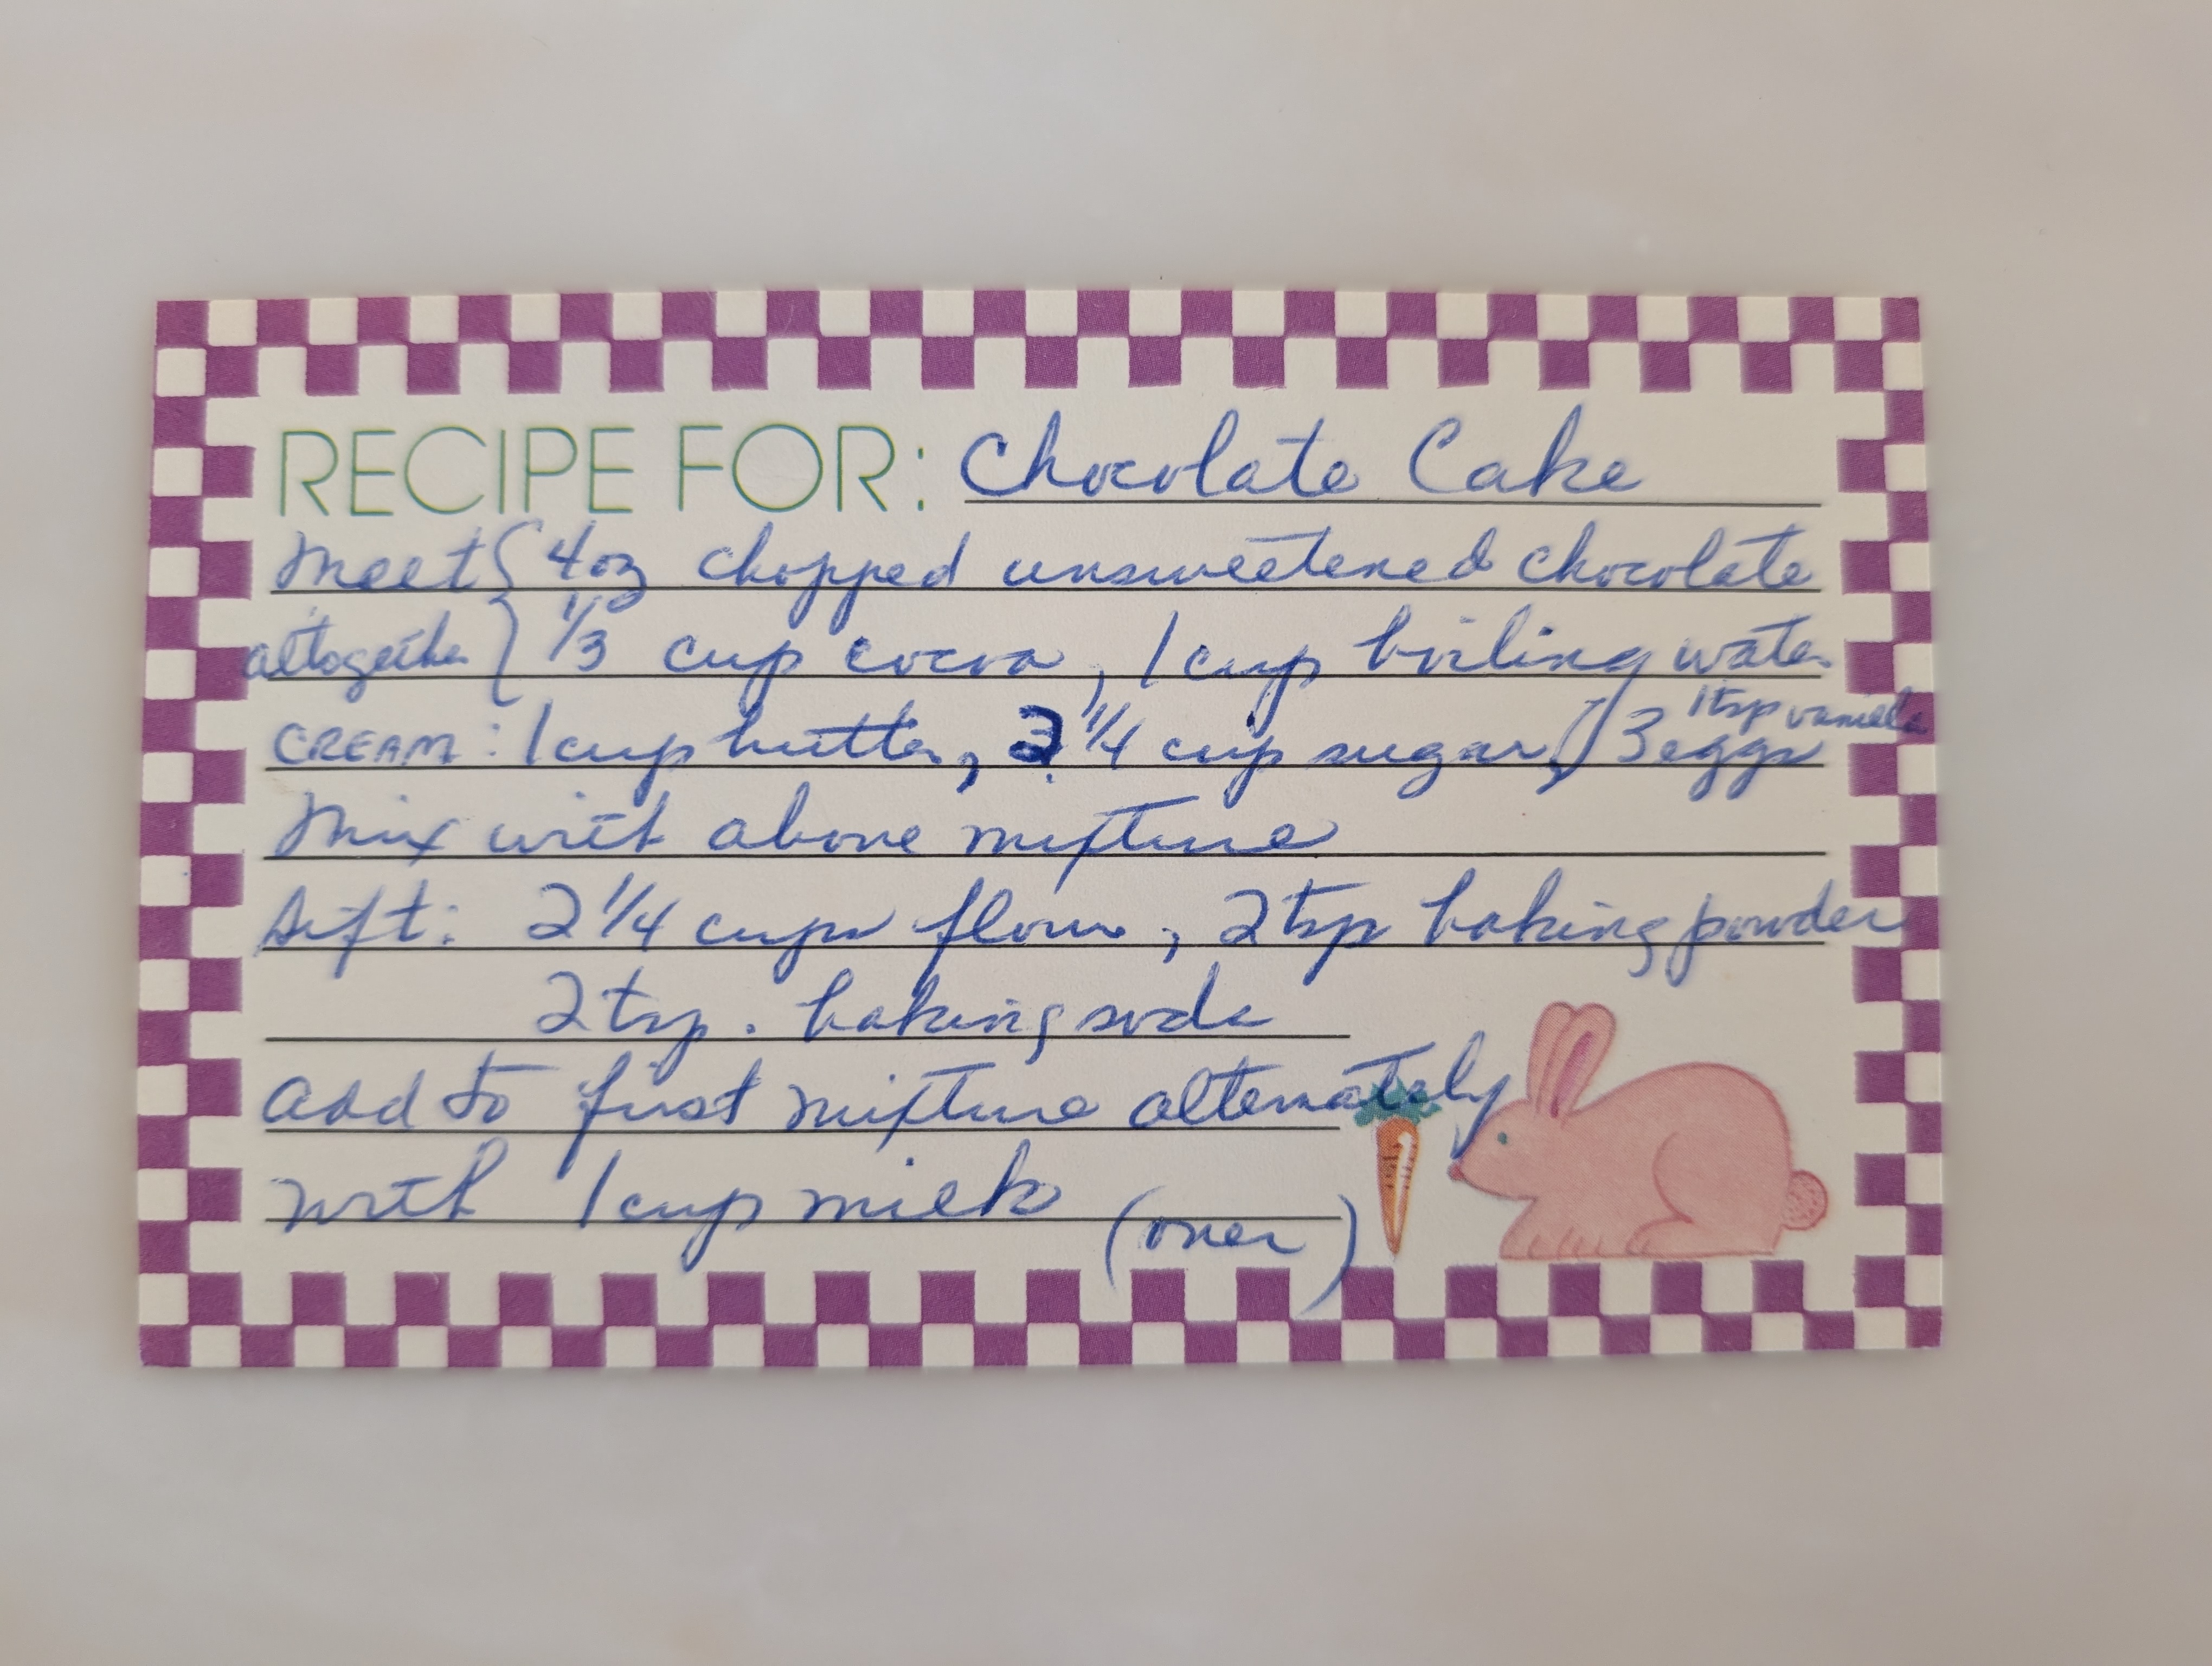 RECIPE FOR: Chocolate Cake
Melt { 4oz chopped unsweetened chocolate
altogether } 1/3 cup cocoa, 1 cup boiling water
1 tsp vanilla
CREAM: 1 cup butter, 2 1/4 cup sugar, 3 eggs
Mix with above mixture
Sift: 2 1/4 cups flour, 2 tsp baking powder
2 tsp. baking soda
add to first mixture alternately
with 1 cup milk
(over)